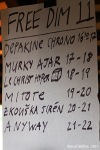 FREE DIM 11
DEPAKINE CHRONO 16-17
MURKY AJAR 17-18
LE CHRIST HYPER 18-19
MITOTE 19-20
ZKOUŠKA SIRÉN 20-21
ANYWAY 21-22